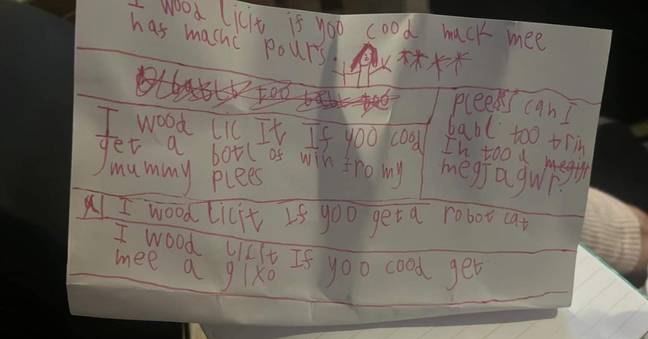 I wood licit if yoo cood mack mee
has machc pours.
I wood lic It If yoo cood
get a botl of win from my
mummy plees
pleess can I
babl too trin
In too a
megjagwr
I wood licit If yoo get a robot cat
I wood licit If yoo cood get
mee a glxo